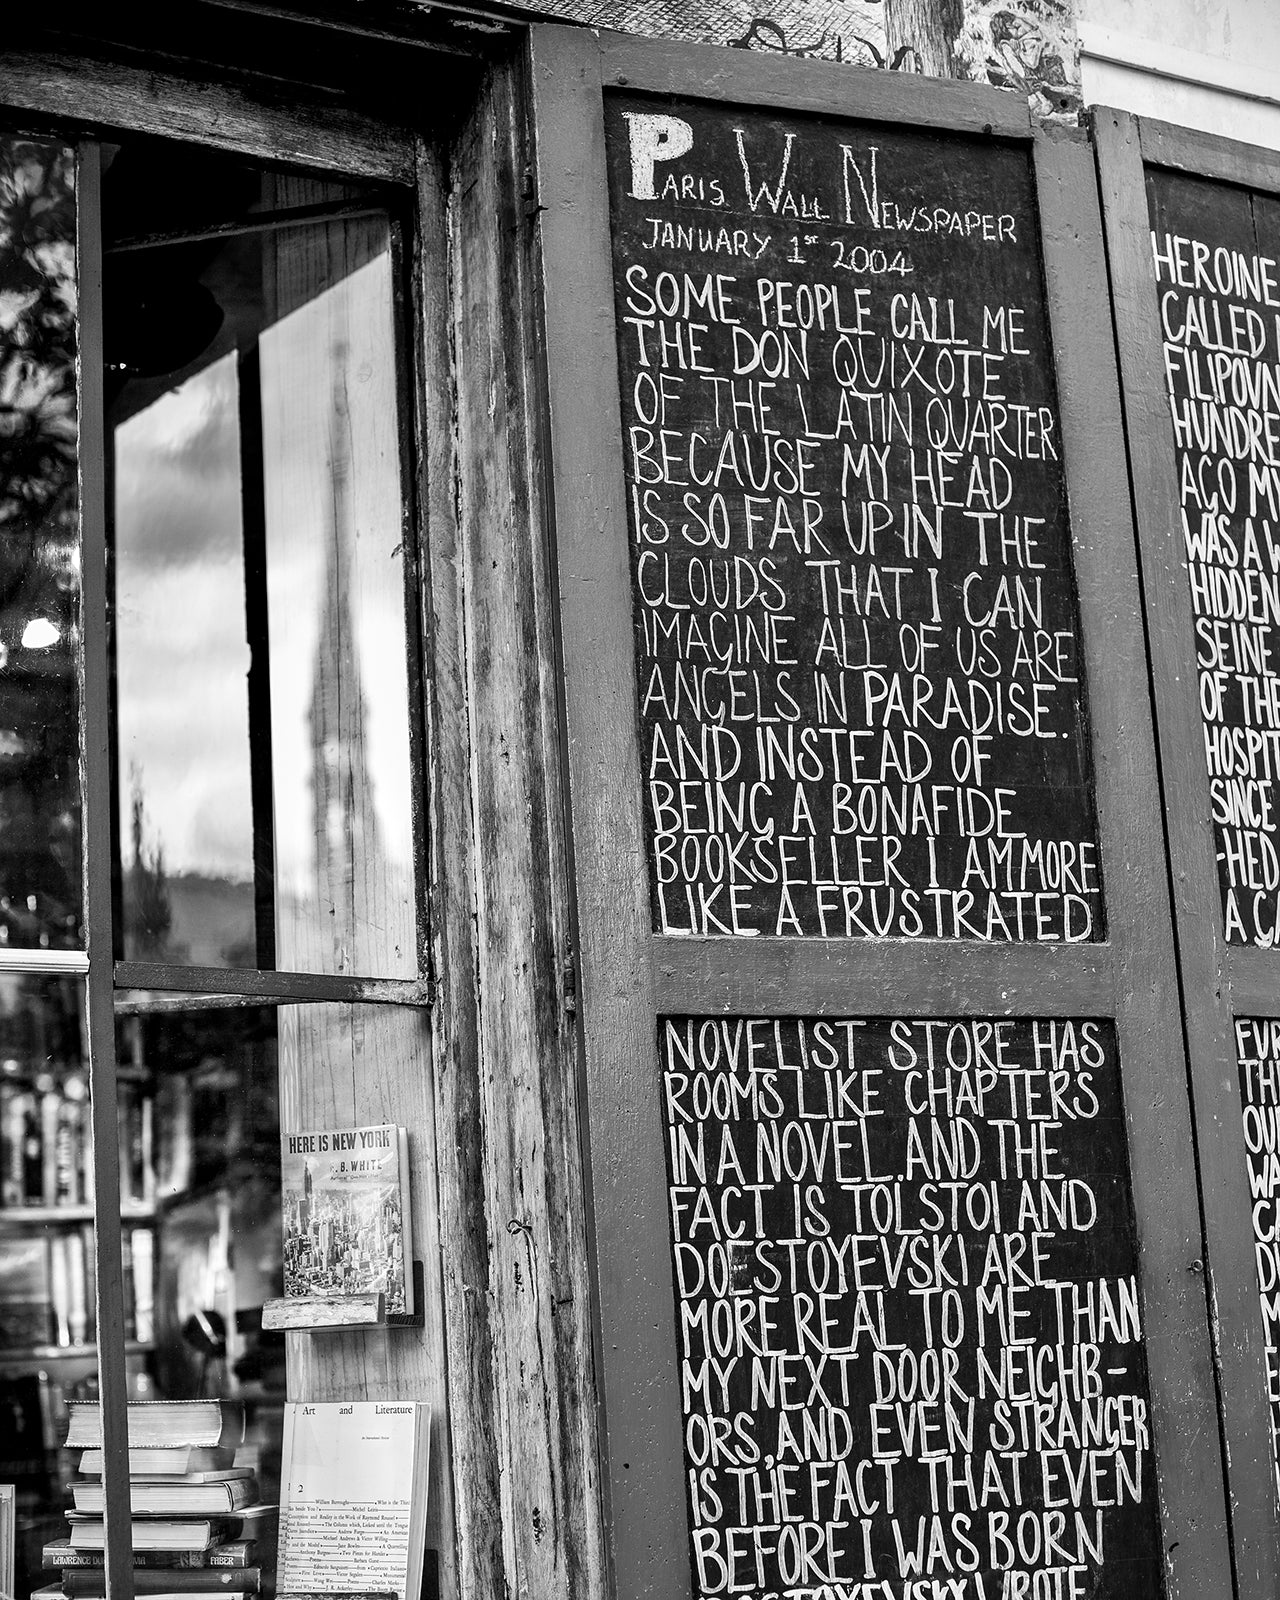 PARIS WALL NEWSPAPER
JANUARY 1ST 2004
SOME PEOPLE CALL ME
THE DON QUIXOTE
OF THE LATIN QUARTER
BECAUSE MY HEAD
IS SO FAR UP IN THE
CLOUDS THAT I CAN
IMAGINE ALL OF US ARE
ANGELS IN PARADISE.
AND INSTEAD OF
BEING A BONAFIDE
BOOKSELLER I AM MORE
LIKE A FRUSTRATED
NOVELIST STORE HAS
ROOMS LIKE CHAPTERS
IN A NOVEL.AND THE
FACT IS TOLSTOI AND
DOESTOYEVSKI ARE
MORE REAL TO ME THAN
MY NEXT DOOR NEIGHB-
ORS, AND EVEN STRANGER
IS THE FACT THAT EVEN
BEFORE I WAS BORN
DOSTOYEVSKY WROTE
HEROINE
CALLED
FILIPOVN
HUNDRE
AGO MY
WAS A W
HIDDEN
SEINE
OF THE
HOSPIT
SINCE
-HED
A CA
FUR
TH
OU
WA
HERE IS NEW YORK
E. B. WHITE
Art and Literature
2
William Burroughs
Michel Leiris
Andrew Forge
Jane Bowles
Anthony Burgess
Two Pieces for Hamlet
Barbara Guest
Victor Segalen
J. R. Ackerley
LAWRENCE DU
FABER